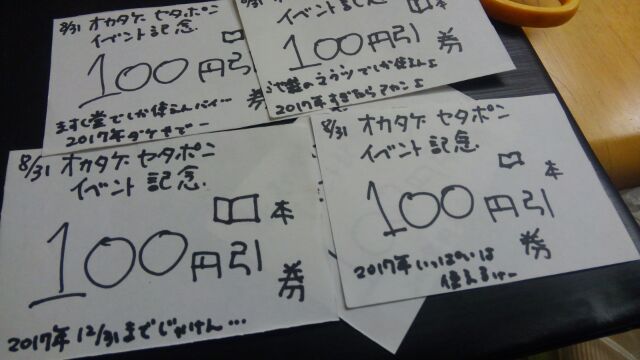 8/31 オカタケ セタポン
イベント記念
本
100円引
券
ますく堂でしか使えんバイ…
2017年ダケヤデー
イベント記念
本
100円引
券
2017年すぎたらアカンよ
8/31 オカタケ セタポン
イベント記念
本
100円引
券
2017年12/31までじゃけん…
8/31 オカタケ セタポン
イベント記念
本
100円引
券
2017年いっぱいは
使えるけー